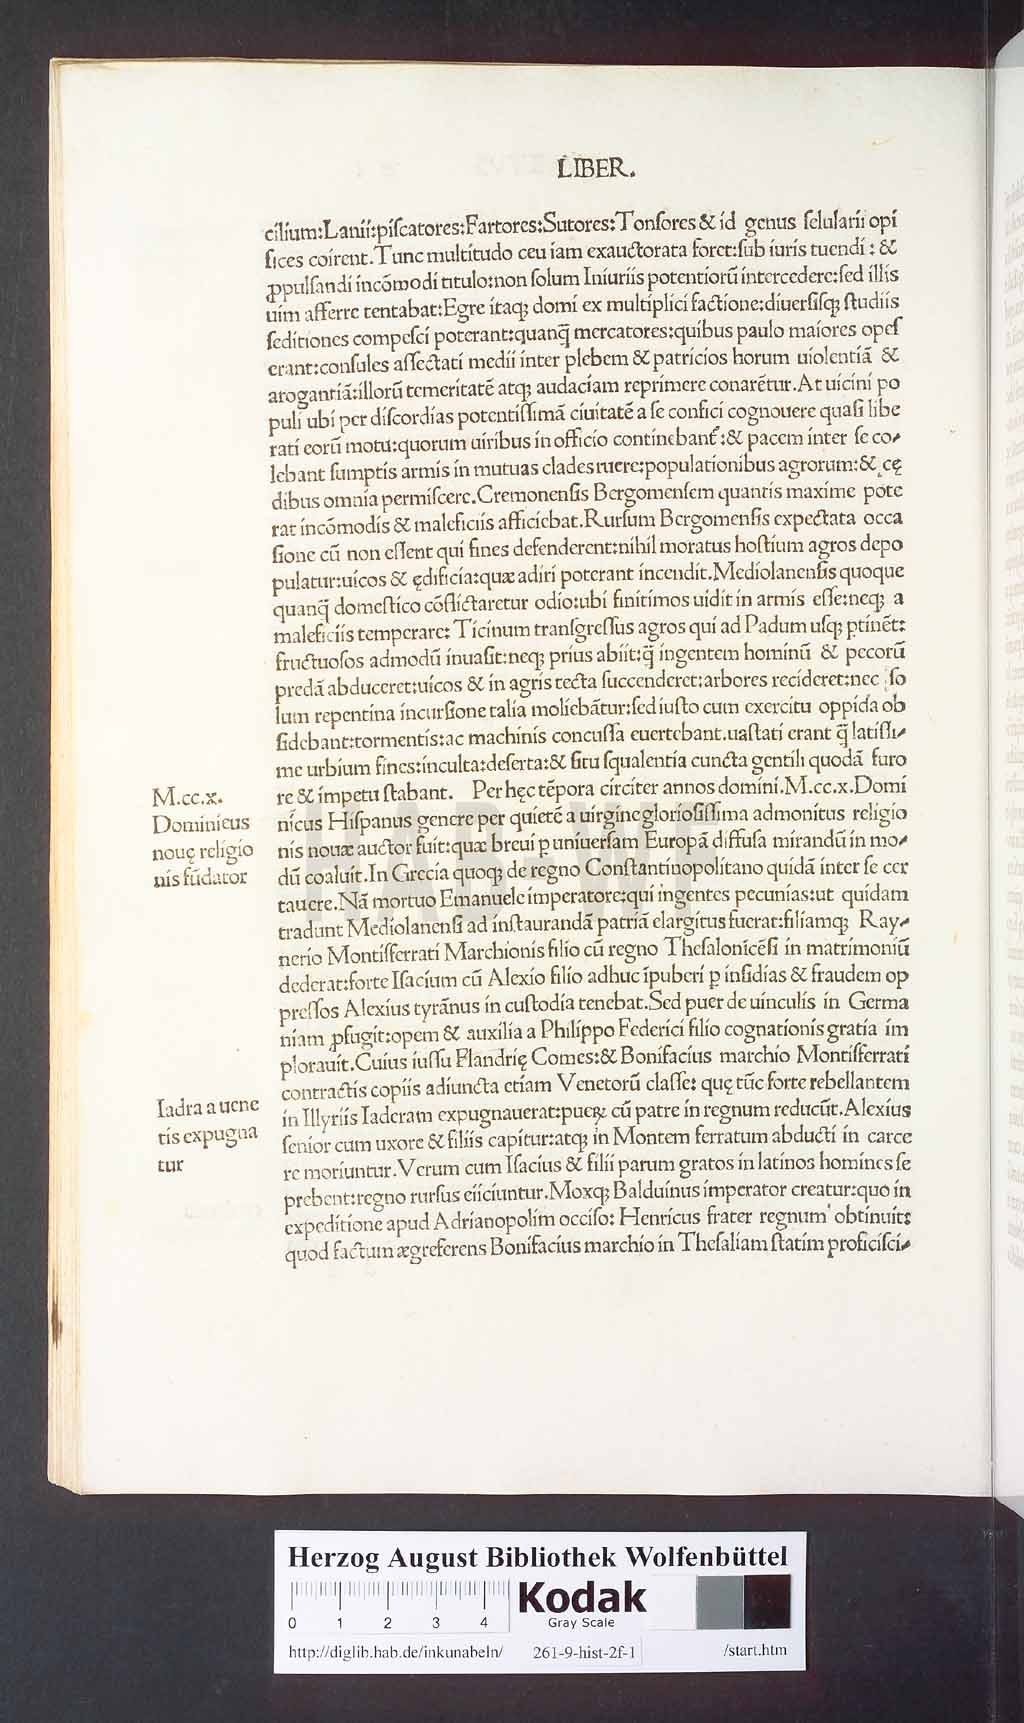 LIBER.
cilium:Lanii:piſcatores:Fartores:Sutores:Tonſores & id genus ſelularii opi
fices coirent.Tunc multitudo ceu iam exauctorata foret:ſub iuris tuendi: &
ꝓpulſandi incōmodi titulo:non ſolum Iniuriis potentiorū intercedere:ſed illis
uim afferre tentabat:Egre itaqꝫ domi ex multiplici factione:diuerſiſqꝫ ſtudiis
ſeditiones compeſci poterant:quanq̄ mercatores:quibus paulo maiores opeſ
erant:conſules aſſectati medii inter plebem & patricios horum uiolentiā &
arogantiā:illorū temeritatē atqꝫ audaciam reprimere conarētur.At uicini po
puli ubi per diſcordias potentiſſimā ciuitatē a ſe confici cognouere quaſi libe
rati eorū motu:quorum uiribus in officio continebant᷑:& pacem inter ſe co-
lebant ſumptis armis in mutuas clades ruere:populationibus agrorum:& cę
dibus omnia permiſcere.Cremonenſis Bergomenſem quantis maxime pote
rat incōmodis & maleficiis afficiebat.Rurſum Bergomenſis expectata occa
ſione cū non eſſent qui fines defenderent:nihil moratus hoſtium agros depo
pulatur:uicos & ędificia:quæ adiri poterant incendit.Mediolanenſis quoque
quanq̄ domeſtico cōflictaretur odio:ubi finitimos uidit in armis eſſe:neqꝫ a
maleficiis temperare: Ticinum tranſgreſſus agros qui ad Padum uſqꝫ ꝑtinēt:
fructuoſos admodū inuaſit:neqꝫ prius abiit:q̄ ingentem hominū & pecorū
predā abduceret:uicos & in agris tecta ſuccenderet:arbores recideret:nec ſo
lum repentina incurſione talia moliebātur:ſed iuſto cum exercitu oppida ob
ſidebant:tormentis:ac machinis concuſſa euertebant.uaſtati erant q̄ latiſſi-
me urbium fines:inculta:deſerta:& ſitu ſqualentia cuncta gentili quodā furo
re & impetu ſtabant. Per hęc tēpora circiter annos domini.M.cc.x.Domi
nicus Hiſpanus genere per quietē a uirgine glorioſiſſima admonitus religio
nis nouæ auctor fuit:quæ breui ꝑ uniuerſam Europā diffuſa mirandū in mo-
dū coaluit.In Grecia quoqꝫ de regno Conſtantinopolitano quidā inter ſe cer
tauere.Nā mortuo Emanuele imperatore:qui ingentes pecunias:ut quidam
tradunt Mediolanenſi ad inſtaurandā patriā elargitus fuerat:filiamqꝫ Ray-
nerio Montifferrati Marchionis filio cū regno Theſalonicēſi in matrimoniū
dederat:forte Iſacium cū Alexio filio adhuc īpuberi ꝑ inſidias & fraudem op
preſſos Alexius tyrānus in cuſtodia tenebat.Sed puer de uinculis in Germa
niam ꝓfugit:opem & auxilia a Philippo Federici filio cognationis gratia im
plorauit.Cuius iuſſu Flandrię Comes:& Bonifacius marchio Montifferrati
contractis copiis adiuncta etiam Venetorū claſſe: quę tūc forte rebellantem
in Illyriis Iaderam expugnauerat:pueꝝ cū patre in regnum reducūt.Alexius
ſenior cum uxore & filiis capitur:atqꝫ in Montem ferratum abducti in carce
re moriuntur.Verum cum Iſacius & filii parum gratos in latinos homines ſe
prebent:regno rurſus eiiciuntur.Moxqꝫ Balduinus imperator creatur:quo in
expeditione apud Adrianopolim occiſo: Henricus frater regnum obtinuit:
quod factum ægreferens Bonifacius marchio in Theſaliam ſtatim proficiſci-
M.cc.x.
Dominicus
nouę religio
nis fūdator
Iadra a uene
tis expugna
tur
HAB-WF
Herzog August Bibliothek Wolfenbüttel
0 1 2 3 4
Kodak
Gray Scale
http://diglib.hab.de/inkunabeln/ 261-9-hist-2f-1 /start.htm